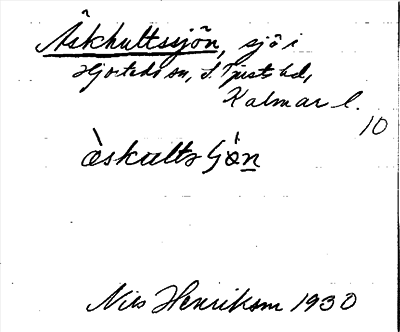 Åskhultssjön, sjö i
Hjorteds sn, S. Tjusts hd,
Kalmar l.
10
åskultsjön
Nils Henrikson 1930